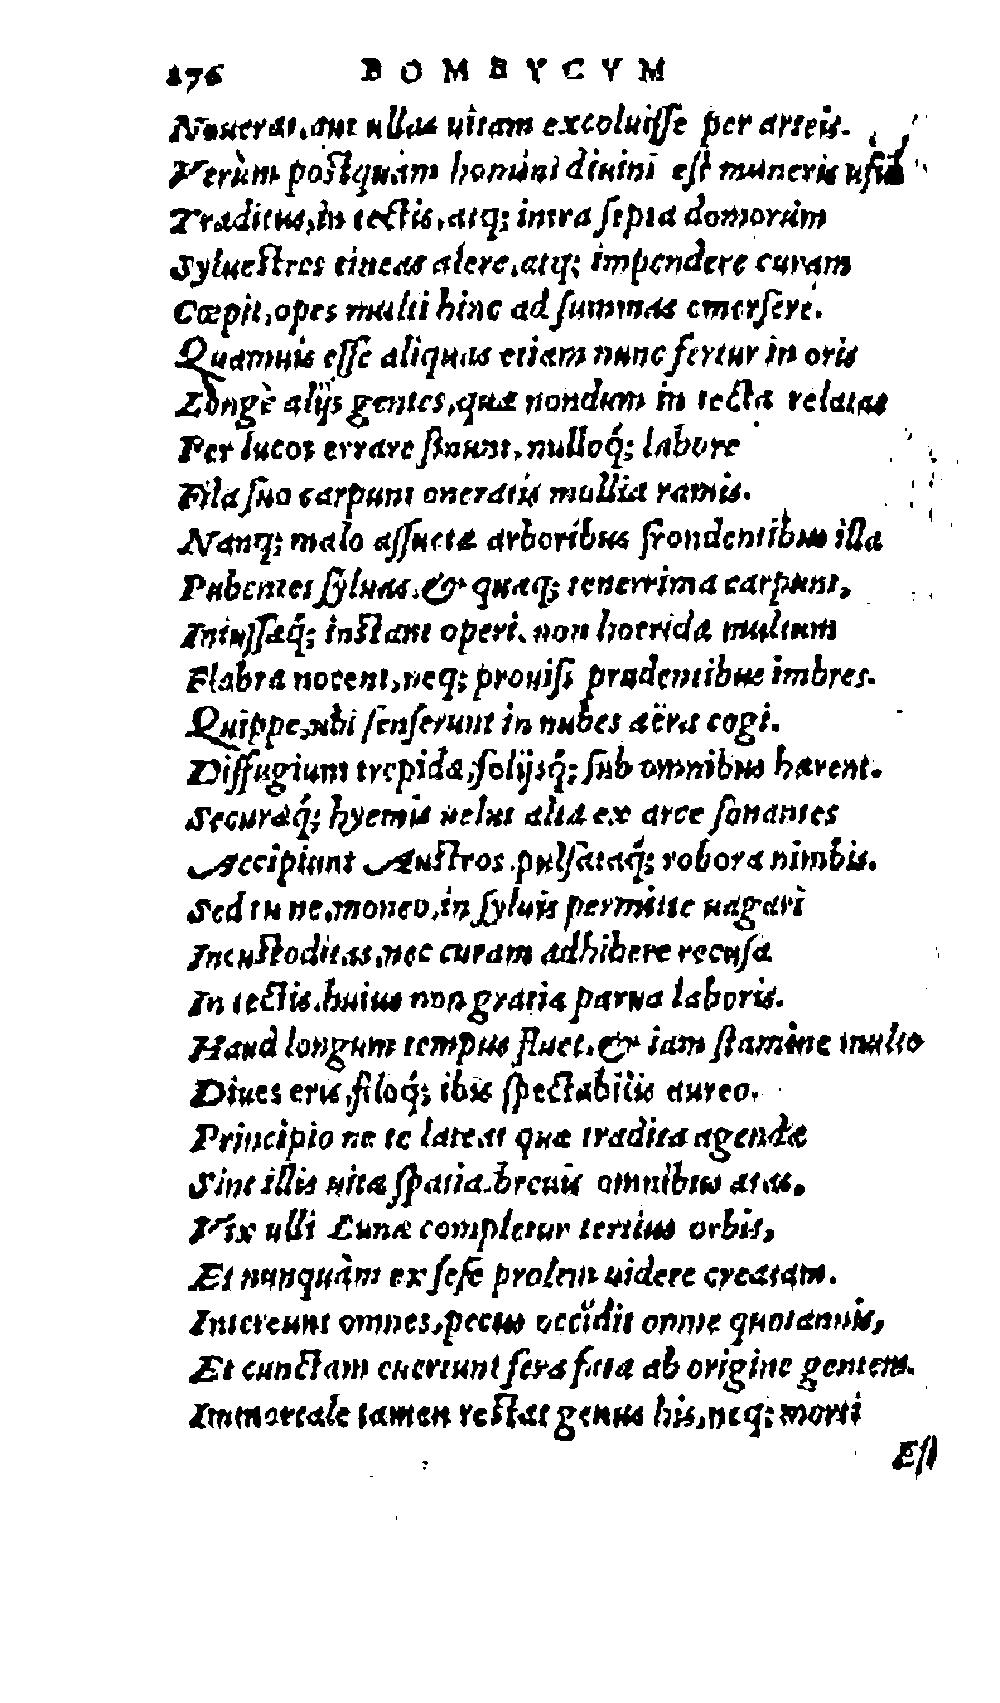 276 BOMBYCVM
Nouerat, aut ullas uitam excoluisse per arteis.
Verùm postquàm homini diuini est muneris usus
Traditus, in tectis, atq; intra septa domorùm
Syluestres tineas alere, atq; impendere curam
Cœpit, opes multi hinc ad summas emersere.
Quamuis esse aliquas etiam nunc fertur in oris
Longè alijs gentes, quæ nondum in tecta relatas
Per lucos errare sinunt, nulloq́; labore
Fila suo carpunt oneratis mollia ramis.
Nanq; malo assuetæ arboribus frondentibus illa
Pubentes syluas, & quaq; tenerrima carpunt,
Iniussaq́; instant operi. non horrida multum
Flabra nocent, neq; prouisi prudentibus imbres.
Quippe, ubi senserunt in nubes aëra cogi.
Diffugiunt trepida, folijsq́; sub omnibus hærent.
Securæq́; hyemis uelut alta ex arce sonantes
Accipiunt Austros, pulsataq́; robora nimbis.
Sed tu ne, moneo, in syluis permitte uagari
Incustoditas, nec curam adhibere recusa
In tectis. huius non gratia parua laboris.
Haud longum tempus fluet, & iam stamine multo
Diues eris, filoq́; ibis spectabilis aureo.
Principio ne te lateat quæ tradita agendæ
Sint illis uitæ spatia. breuis omnibus ætas.
Vix ulli Lunæ completur tertius orbis,
Et nunquàm ex sese prolem uidere creatam.
Intereunt omnes, pecus occidit omne quotannis,
Et cunctam euertunt fera fata ab origine gentem.
Immortale tamen restat genus his, neq; morti
Est